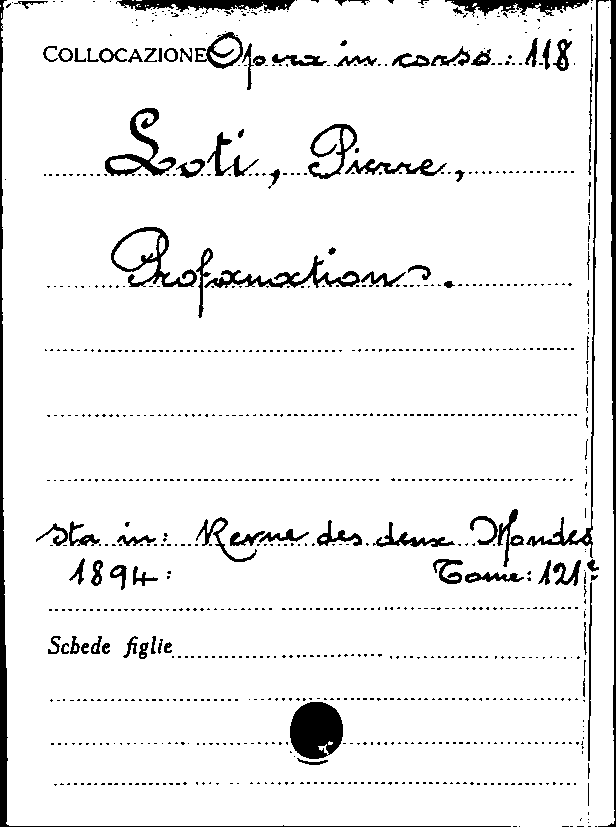 COLLOCAZIONE Opera in corso: 118
Loti, Pierre,
Profanation.
sta in: Revue des deux Mondes
1894: Tome: 121e
Schede figlie